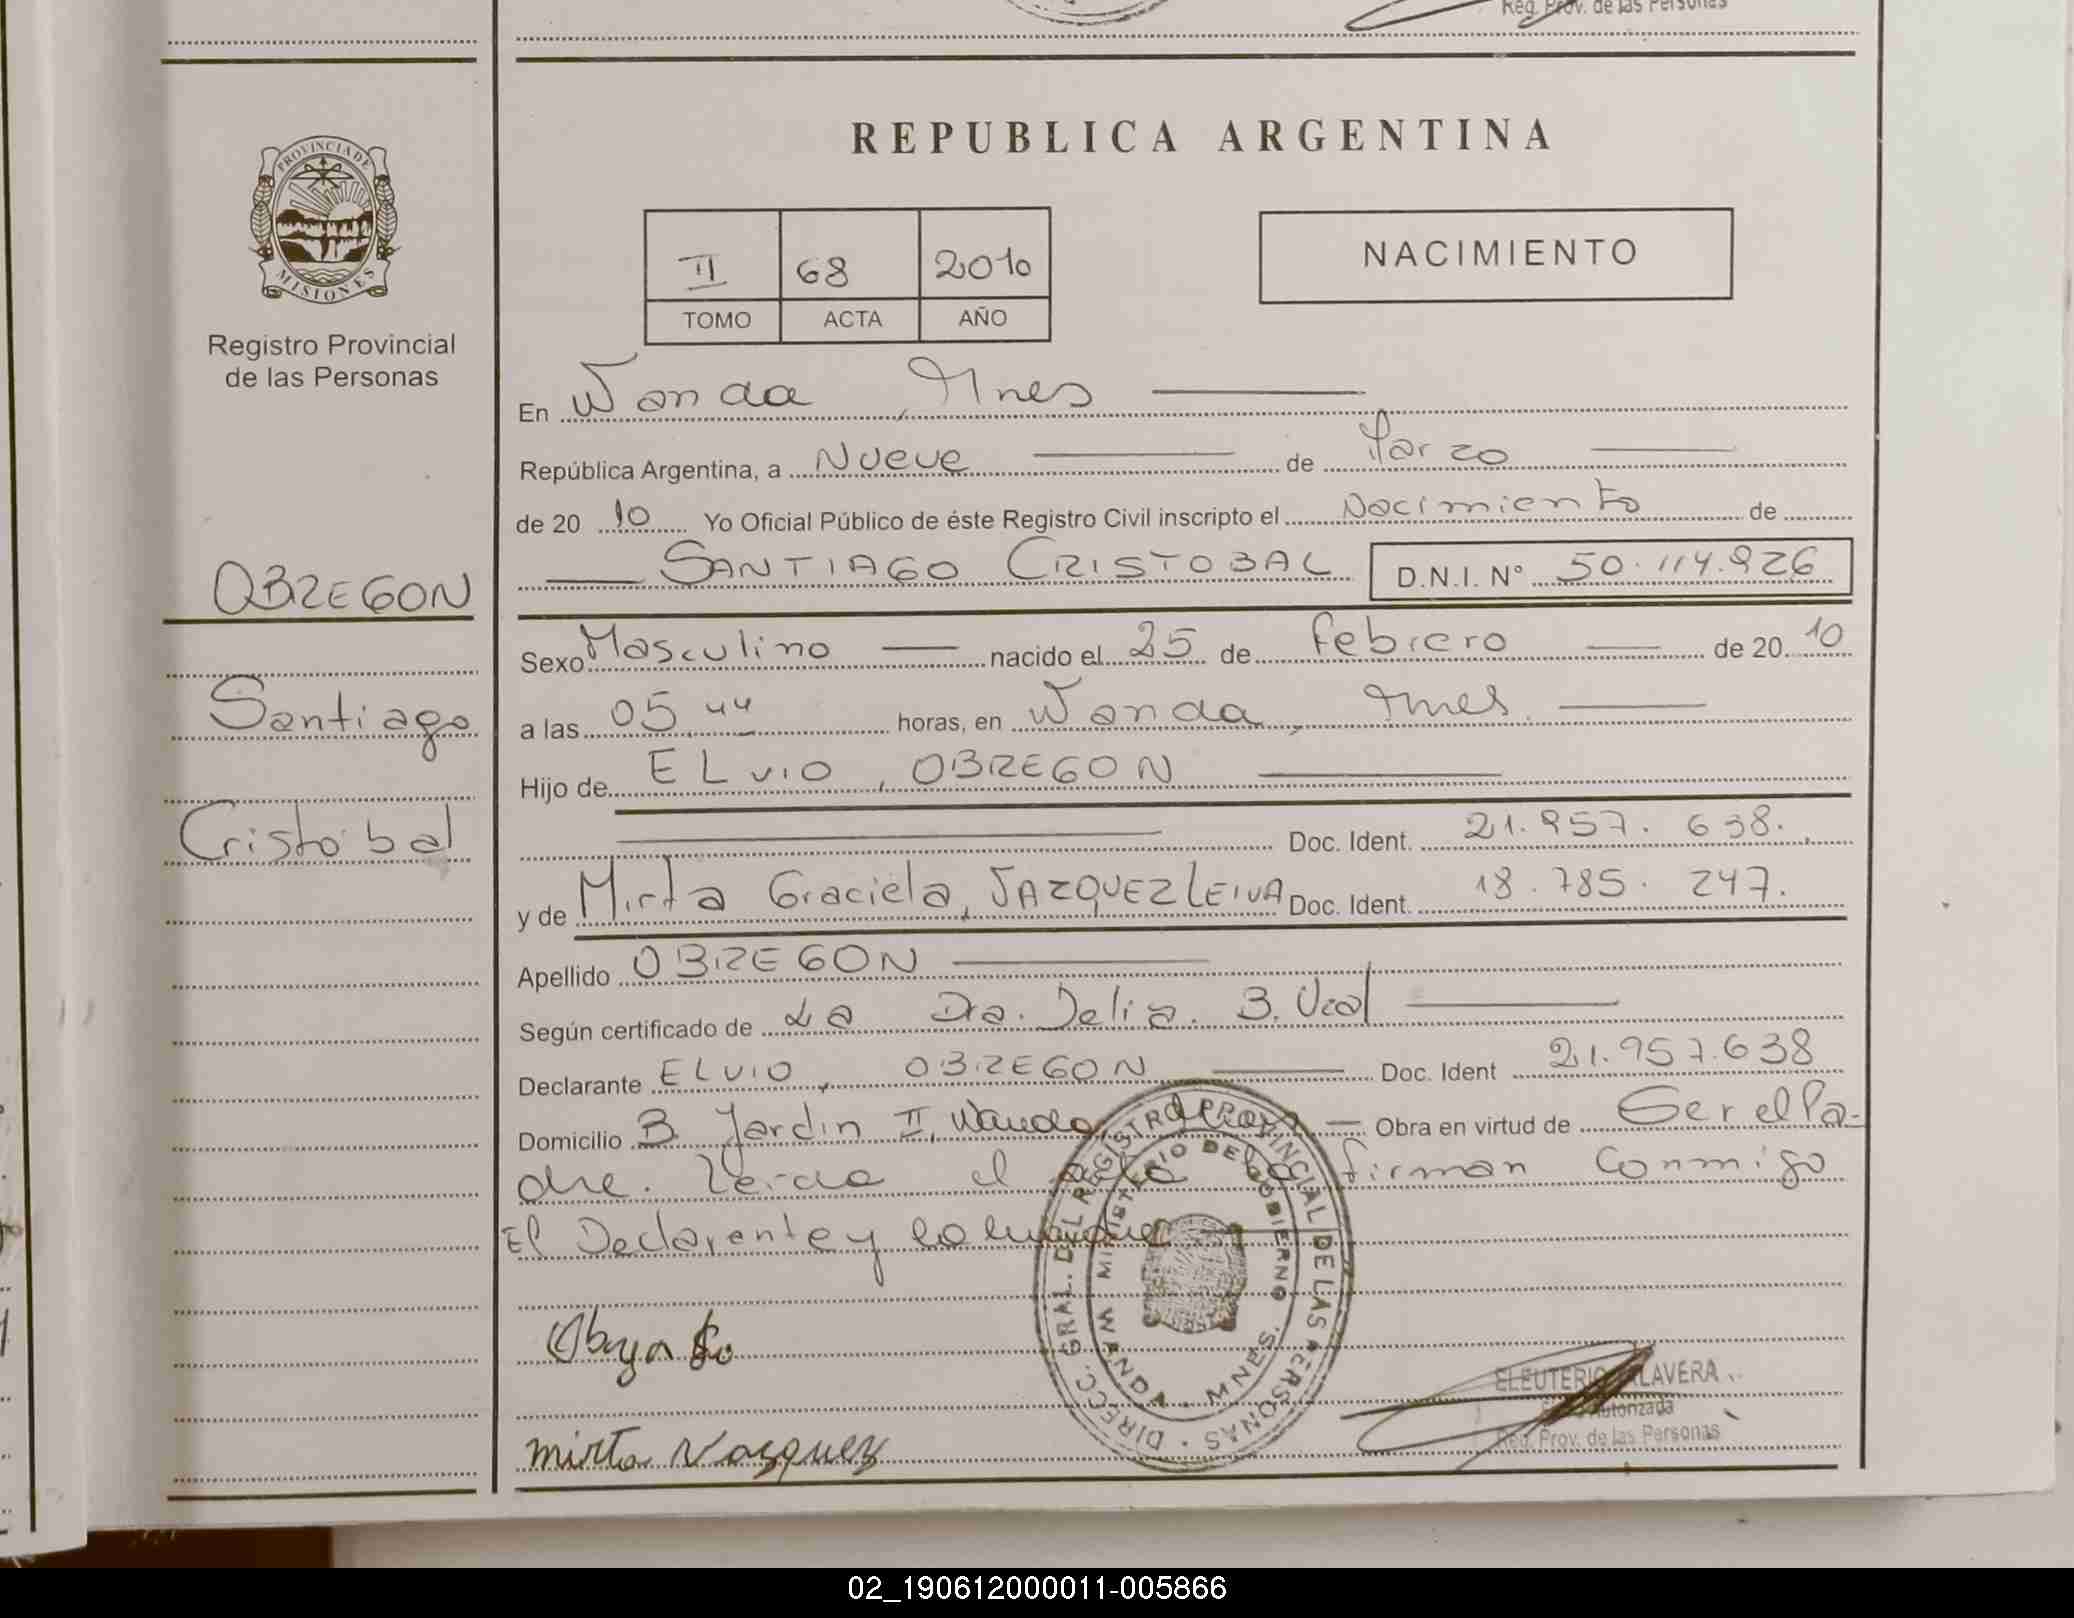 Reg. Prov. de las Personas
PROVINCIA DE
MISIONES
Registro Provincial
de las Personas
OBREGON
Santiago
Cristobal
REPUBLICA ARGENTINA
II 68 2010
TOMO ACTA AÑO
NACIMIENTO
En Wanda, Mnes
República Argentina, a Nueve de Marzo
de 20 10 Yo Oficial Público de éste Registro Civil inscripto el Nacimiento de
SANTIAGO CRISTOBAL D.N.I. N° 50.114.926
Sexo Masculino nacido el 25 de febrero de 20 10
a las 05,44 horas, en Wanda, Mnes
Hijo de ELVIO, OBREGON
Doc. Ident. 21.957.638.
y de Mirta Graciela, VAZQUEZ LEIVA Doc. Ident. 18.785.247.
Apellido OBREGON
Según certificado de La Dra. Delia. B.
Declarante ELVIO, OBREGON Doc. Ident 21.957.638
Domicilio B Jardin II, Wanda, Obra en virtud de Ser el Pa-
dre. Leida el acta la firman Conmigo
El Declarante y
DIRECC. GRAL. DEL REGISTRO PROVINCIAL DE LAS PERSONAS
MINISTERIO DE GOBIERNO
WANDA - MNES.
mirta Vazquez
ELEUTERIO TALAVERA
Autorizada
Reg. Prov. de las Personas
02_190612000011-005866